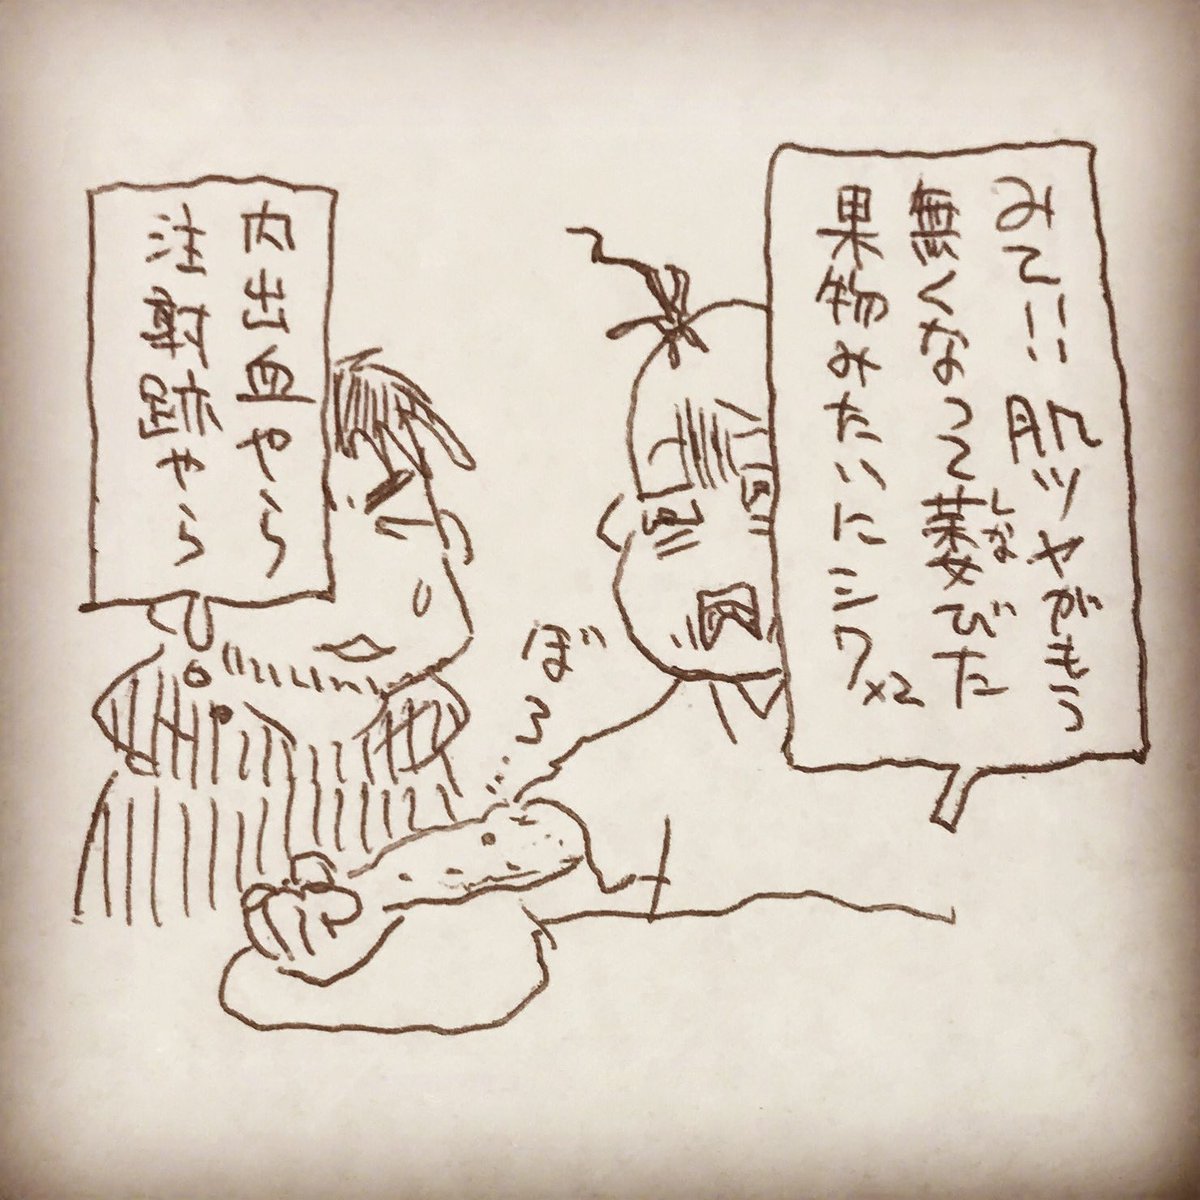 みて!! 肌ツヤがもう
無くなって萎びた
しな
果物みたいにシワ×2
ぼろ…
内出血やら
注射跡やら